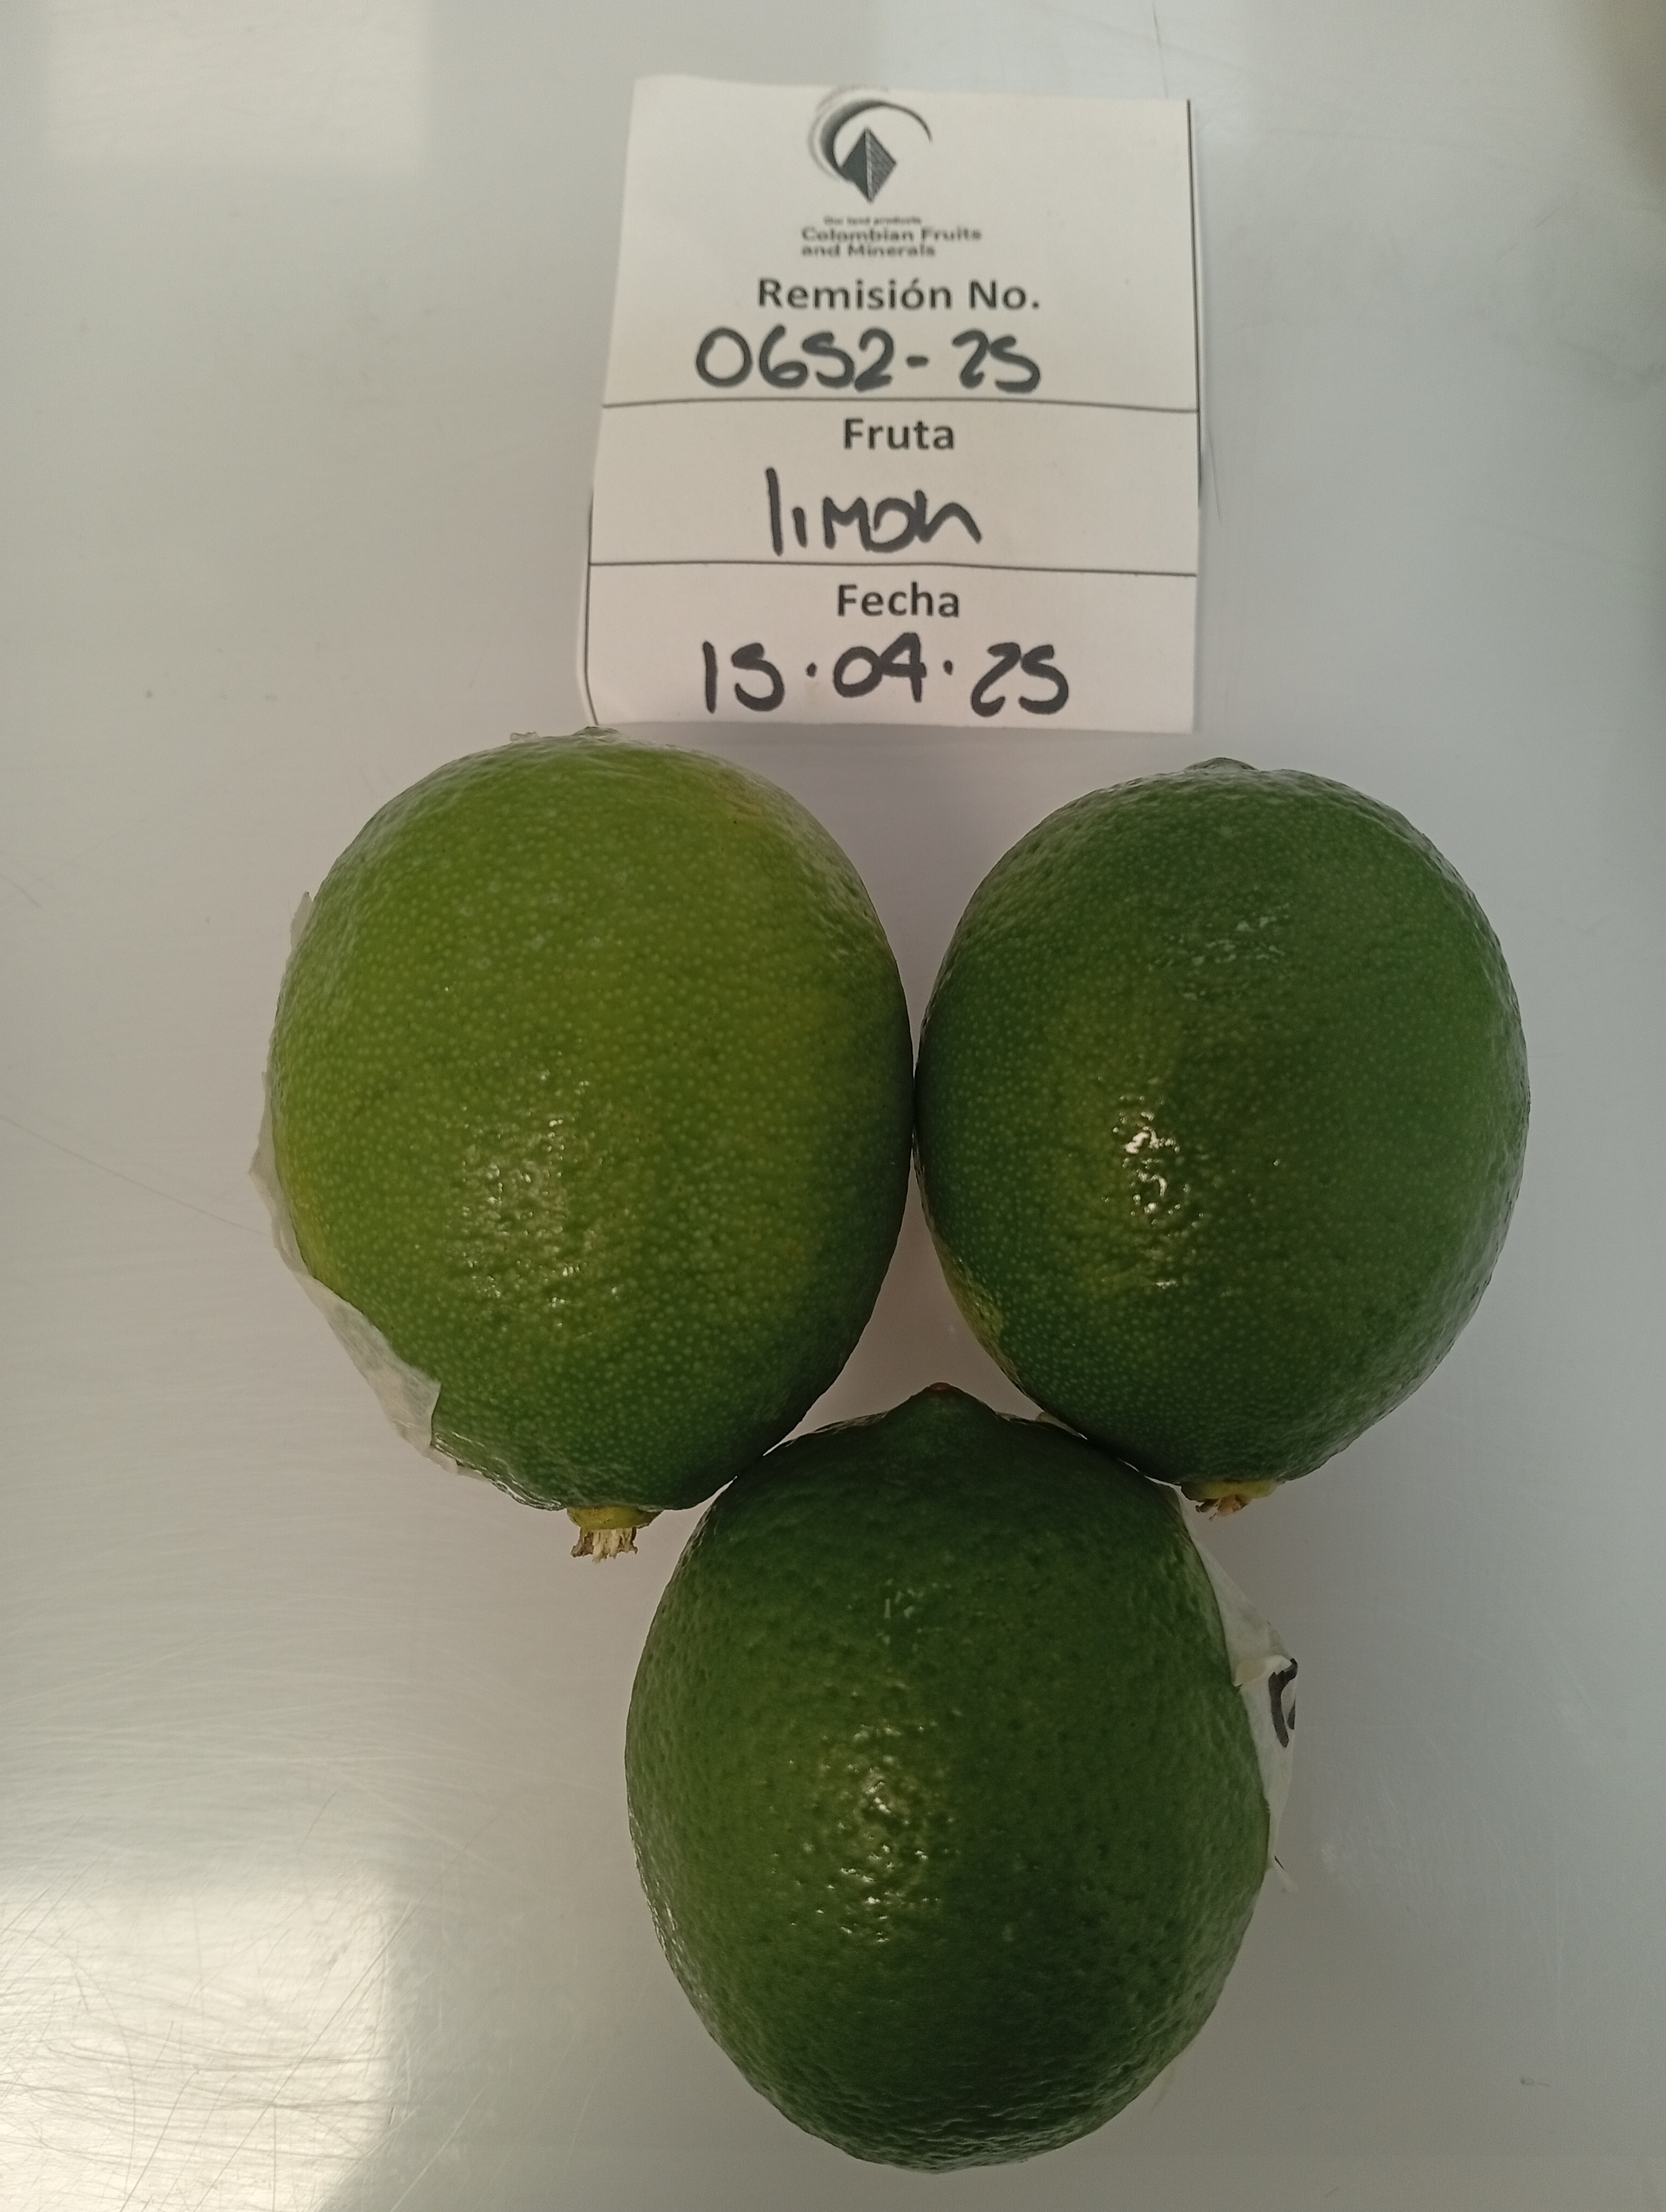 Our land products
Colombian Fruits
and Minerals
Remisión No.
0652-25
Fruta
limon
Fecha
15·04·25